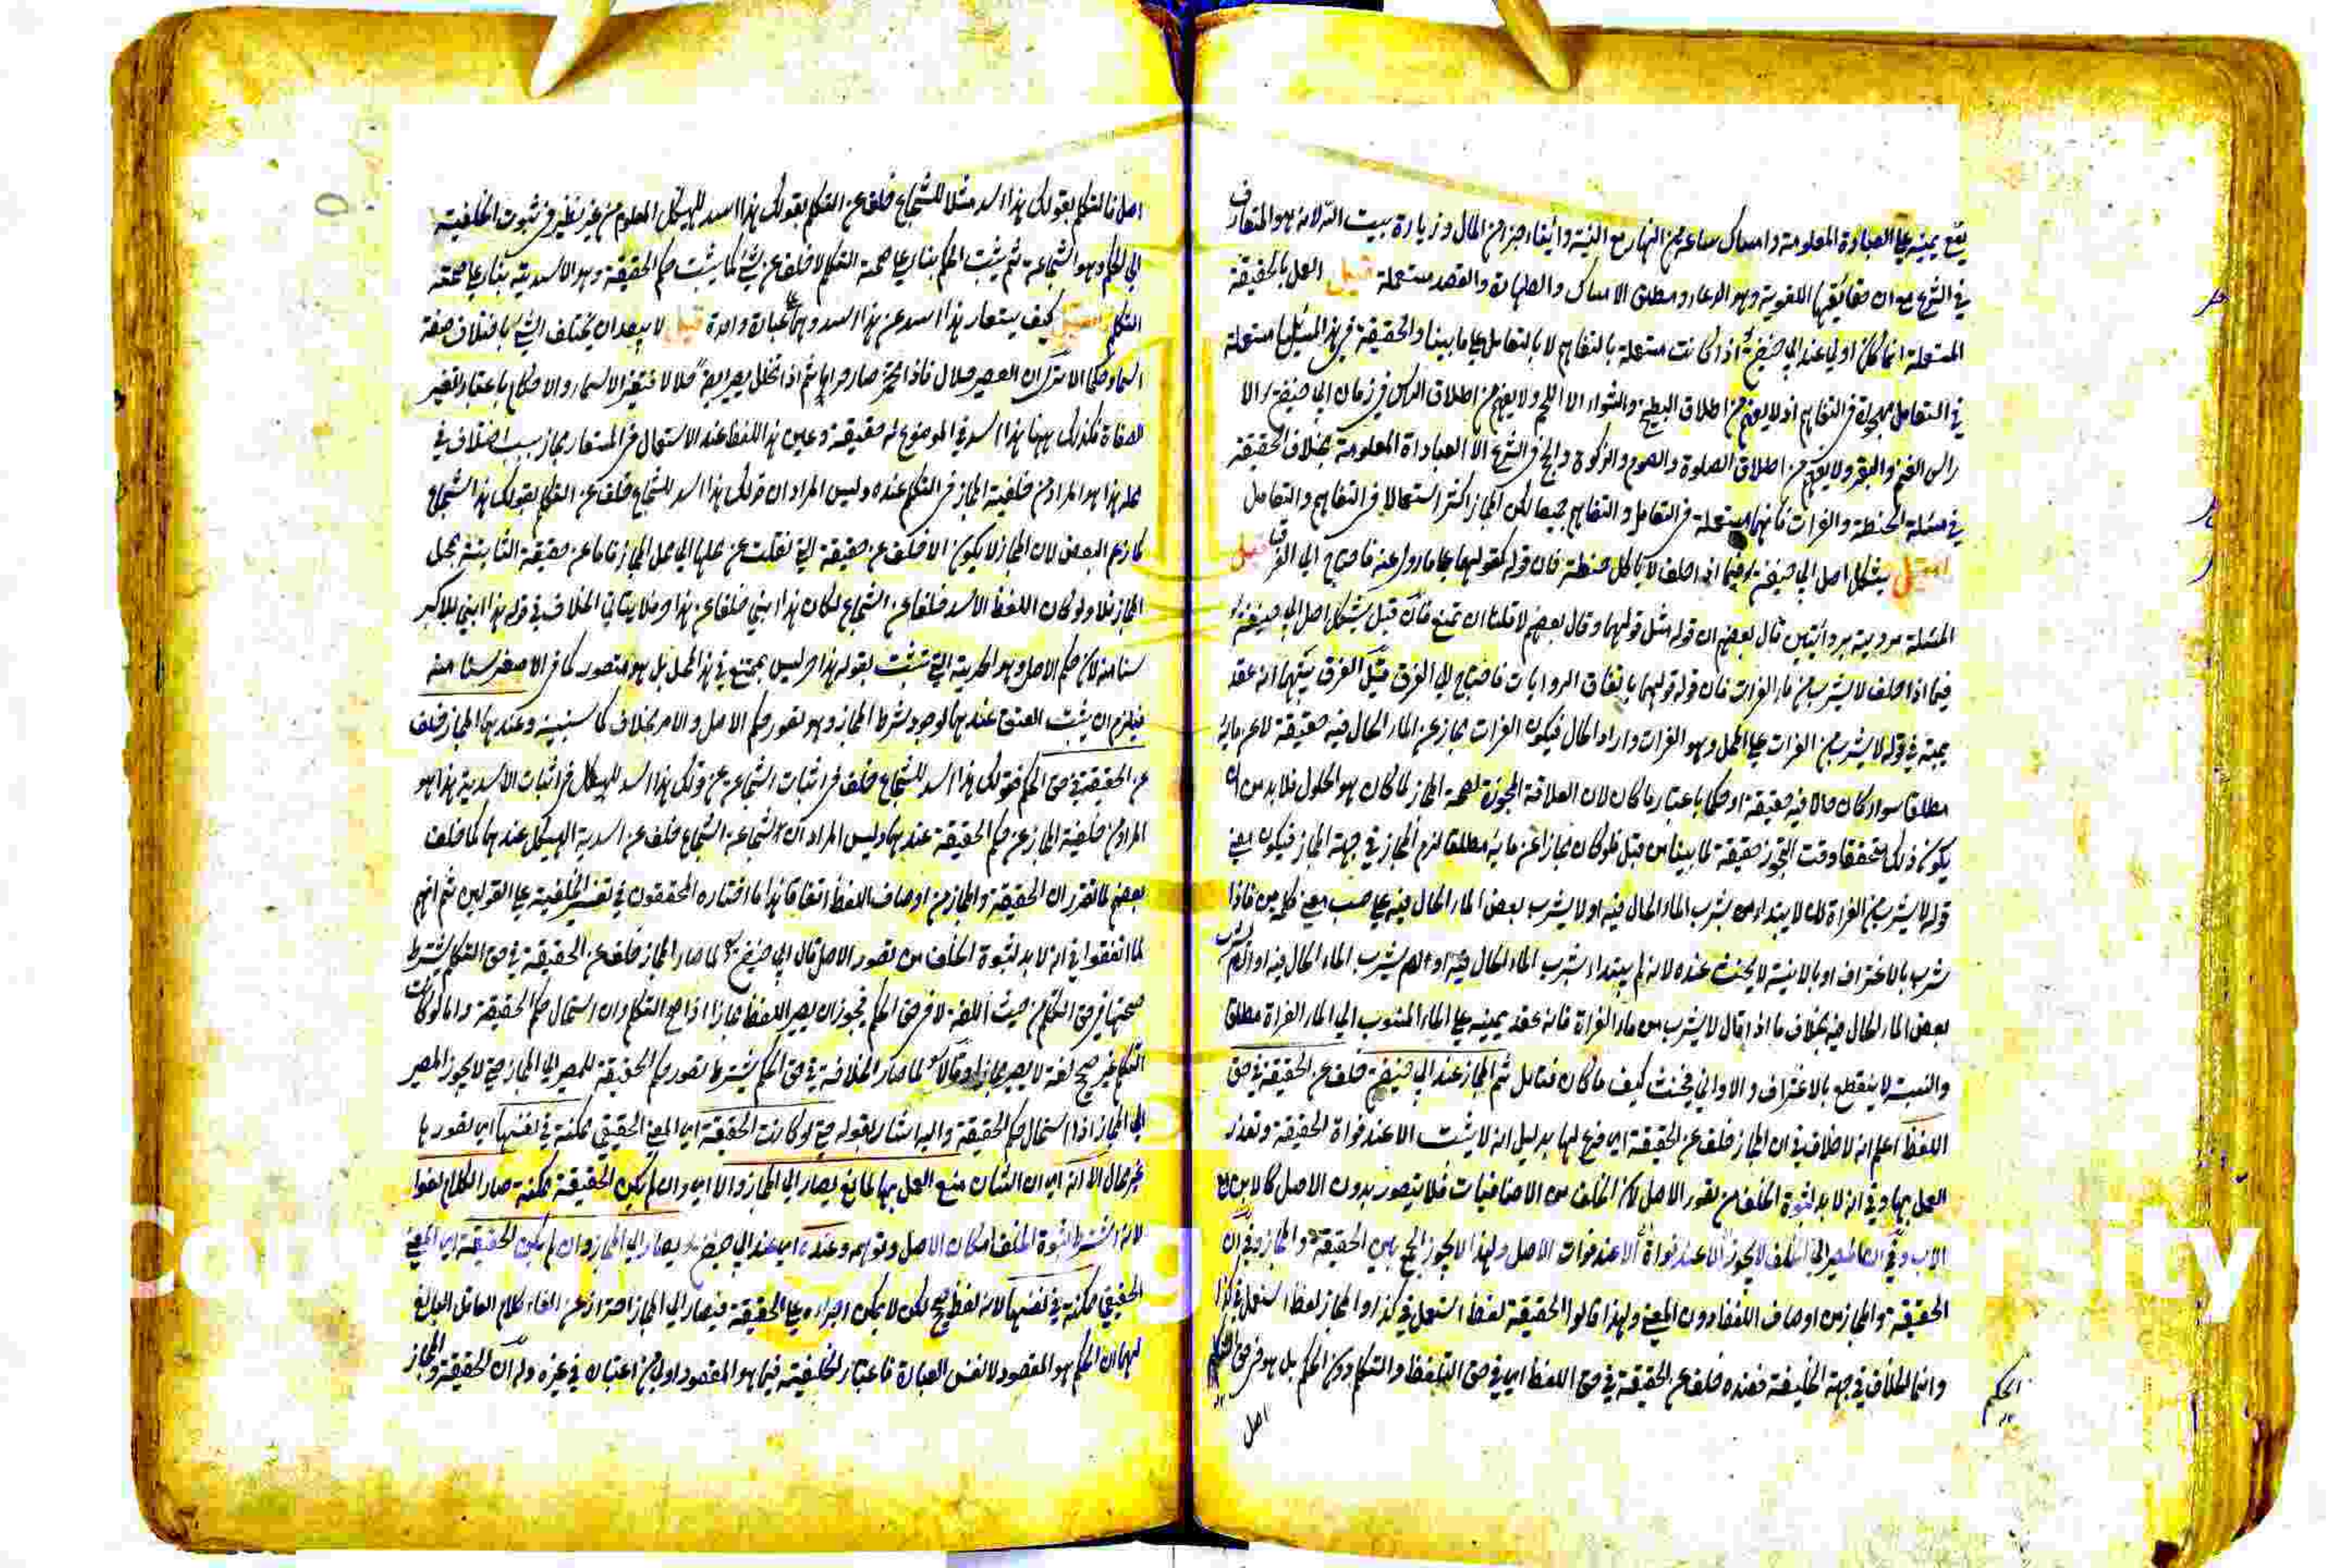 يقع يمينه على العبادة المعلومة وامساك ساعة من النهار مع النية وايتاء جزء من المال وزيارة بيت الله لانه هو المتعارف
في الشرع مع ان حقائقها اللغوية وهو الدعاء ومطلق الامساك والطهارة والقصد مستعملة قيل العمل بالحقيقة
المستعملة انما كان اولى عند ابي حنيفة اذا كانت مستعملة بالتفاهم لا بالتعامل على ما بينا والحقيقة في هذه المسئلة مستعملة
في التعامل مهجورة في التفاهم اذ لا يفهم من اطلاق الطبيخ والشواء الا اللحم ولا يفهم من اطلاق الراس في زمان ابي حنيفة الا
راس الغنم والبقر ولا يفهم من اطلاق الصلوة والصوم والزكوة والحج في الشرع الا العبادات المعلومة بخلاف الحقيقة
في مسئلة الحنطة والفرات فانها مستعملة في التعامل والتفاهم جميعا لكن المجاز اكثر استعمالا في التفاهم والتعامل
يشكل اصل ابي حنيفة فيما اذا حلف لا ياكل حنطة فان قوله كقولهما على ما روي عنه فاحتاج الى الفرق قيل
المسئلة مروية بروايتين قال بعضهم ان قوله مثل قولهما وقال بعضهم لا فلنا ان نمنع فان قيل يشكل اصل ابي حنيفة
فيما اذا حلف لا يشرب من ماء الفرات فان قوله قولهما باتفاق الروايات فاحتاج الى الفرق قيل الفرق بينهما انه عقد
يمينه في قوله لا يشرب من الفرات على المحل وهو الفرات واراد الحال فيكون الفرات مجازا عن الماء الحال فيه حقيقة لا عن مائه
مطلقا سواء كان حالا فيه حقيقة او حكما باعتبار ما كان لان العلاقة المجوزة لصحة المجاز لما كان هو الحلول فلا بد من ان
يكون ذلك متحققا وقت التجوز حقيقة لما بينا من قبل فلو كان مجازا عن مائه مطلقا لزم المجاز في جهة المجاز فيكون معنى
قوله لا يشرب من الفراة ان لا يبتداء من بشرب الماء الحال فيه او لا يشرب بعض الماء الحال فيه على حسب معنى كلمة من فاذا
شرب بالاغتراف او بالانية لا يحنث عنده لانه لم يبتداء بشرب الماء الحال فيه او لم يشرب
بعض الماء الحال فيه بخلاف ما اذا قال لا يشرب من ماء الفراة فانه عقد يمينه على الماء المنسوب الى الماء الفراة مطلقا
والنسبة لا ينقطع بالاغتراف والاواني فيحنث كيف ما كان فتامل ثم المجاز عند ابي حنيفة خلف عن الحقيقة في حق
اللفظ اعلم انه لا خلاف في ان المجاز خلف عن الحقيقة اي فرع لها بدليل انه لا يثبت الا عند فواة الحقيقة وتعذر
العمل بها وفي انه لا بد لثبوة الخلف من تصور الاصل لان الخلف من الاضافيات فلا يتصور بدون الاصل كالابن مع
الاب وفي ان المصير الى الخلف لا يجوز الا عند فوات الاصل ولهذا لا يجوز الجمع بين الحقيقة والمجاز وفي ان
الحقيقة والمجاز من اوصاف اللفظ دون المعنى ولهذا قالوا الحقيقة لفظ استعمل في كذا والمجاز لفظ استعمل في كذا
وانما الخلاف في جهة الخليفة فعنده خلف عن الحقيقة في حق اللفظ اي في حق التلفظ والتكلم دون الحكم بل هو في حق
الحكم
اصل
اصل فالتكلم بقولك هذا اسد مثلا للشجاع خلف عن التكلم بقولك هذا اسد للهيكل المعلوم من غير نظر في ثبوت الخلفية
الى الحكم وهو الشجاعة ثم يثبت الحكم بناء على صحة التكلم لا خلف عن شيء كما يثبت حكم الحقيقة وهو الاسدية بناء على صحة
التكلم كيف يستعار هذا اسد عن هذا اسد وهما عبارة واحدة قيل لا يبعد ان يختلف الشيء باختلاف صفة
ان العصير حلال فاذا تخمر صار حراما ثم اذا تخلل يصير ايضا حلالا فتغير الاسماء والاحكام باعتبار تغير
الصفاة فكذلك ههنا هذا اسد في الموضوع له حقيقة وعين هذا اللفظ عند الاستعمال في المستعار مجاز بسبب اختلاف في
محله هذا هو المراد من خلفية المجاز في التكلم عنده وليس المراد ان قولك هذا اسد للشجاع خلف عن التكلم بقولك هذا الشجاع
كما زعم البعض لان المجاز لا يكون الا خلف عن حقيقة التي نقلت عن محلها الى محل المجاز فاما عن حقيقة الثابتة بمحل
المجاز فلا ولو كان اللفظ الاسد خلفا عن الشجاع لكان هذا ابني خلفا عن هذا حر فلا يتاتى الخلاف في قوله هذا ابني للاكبر
سنا منه لان حكم الاصل وهو الحرية التي تثبت بقوله هذا حر ليس بممتنع في هذا المحل بل هو متصور كما في الاصغر سنا منه
فيلزم ان يثبت العتق عندهما لوجود شرط المجاز وهو تصور حكم الاصل والامر بخلاف كما سنبينه وعندهما المجاز خلف
عن الحقيقة في حق الحكم فقولك هذا اسد للشجاع خلف في اثبات الشجاعة عن قولك هذا اسد للهيكل في اثبات الاسدية هذا هو
المراد من خلفية المجاز عن حكم الحقيقة عندهما وليس المراد ان الشجاعة الشجاع خلف عن اسدية الهيكل عندهما كما خلف
بعضهم لما تقرر ان الحقيقة والمجاز من اوصاف اللفظ اتفاقا هذا ما اختاره المحققون في تفسير الخلفية على القولين ثم انهم
لما اتفقوا في انه لا بد لثبوة الخلف من تصور الاصل قال ابي حنيفة لما صار المجاز خلف عن الحقيقة في حق التكلم يشترط
صحتها في حق التكلم من حيث اللغة لا في حق الحكم فيجوز ان يصير اللفظ مجازا اذا صح التكلم وان استحال حكم الحقيقة واما لو كان
التكلم غير صحيح لغة لا يصير مجازا وقالا لما صار الخلافة في حق الحكم يشترط تصور حكم الحقيقة للمصير الى المجاز حتى لا يجوز المصير
الى المجاز اذا استحال حكم الحقيقة واليه اشار بقوله حتى لو كانت الحقيقة اي المعنى الحقيقي ممكنة في نفسها اي تصور بها
غير محال الا انه اي ان الشان منع العمل بها لمانع يصار الى المجاز والا اي وان لم يكن الحقيقة ممكنة صار الكلام لغوا
لانه الشرط لثبوة الخلف امكان الاصل وتوهمه وعنده اي عند ابي حنيفة يصار الى المجاز وان لم يكن الحقيقة اي المعنى
الحقيقي ممكنة في نفسها لانه لفظ صحيح لكن لا يمكن اجراءه على الحقيقة فيصار الى المجاز احترازا عن الغاء كلام العاقل البالغ
لهما ان الحكم هو المقصود لا نفس العبارة فاعتبار الخلفية فيما هو المقصود اولى من اعتباره في غيره وله ان الحقيقة والمجاز